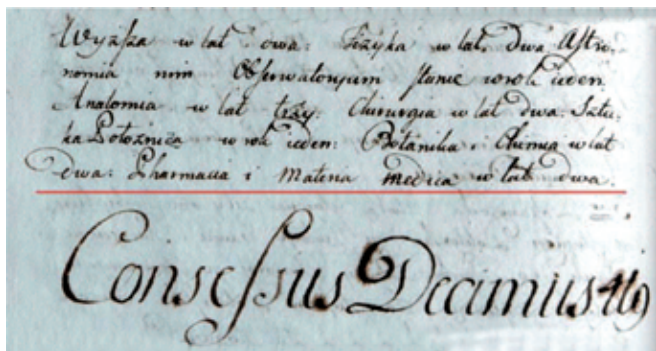 Wyższa w lat dwa: Fizyka w lat dwa Astro-
nomia nim Obserwatoryum stanie w rok ieden
Anatomia w lat trzy: Chirurgia w lat dwa: Sztu-
ka Położnicza w rok ieden: Botanika i Chimia w lat
dwa: Pharmacia i Materia medica w lat dwa.
Consessus Decimus